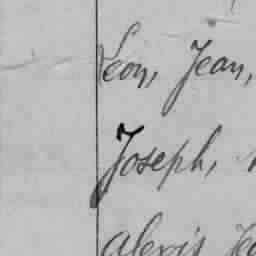 Léon, Jean,
Joseph,
Alexis